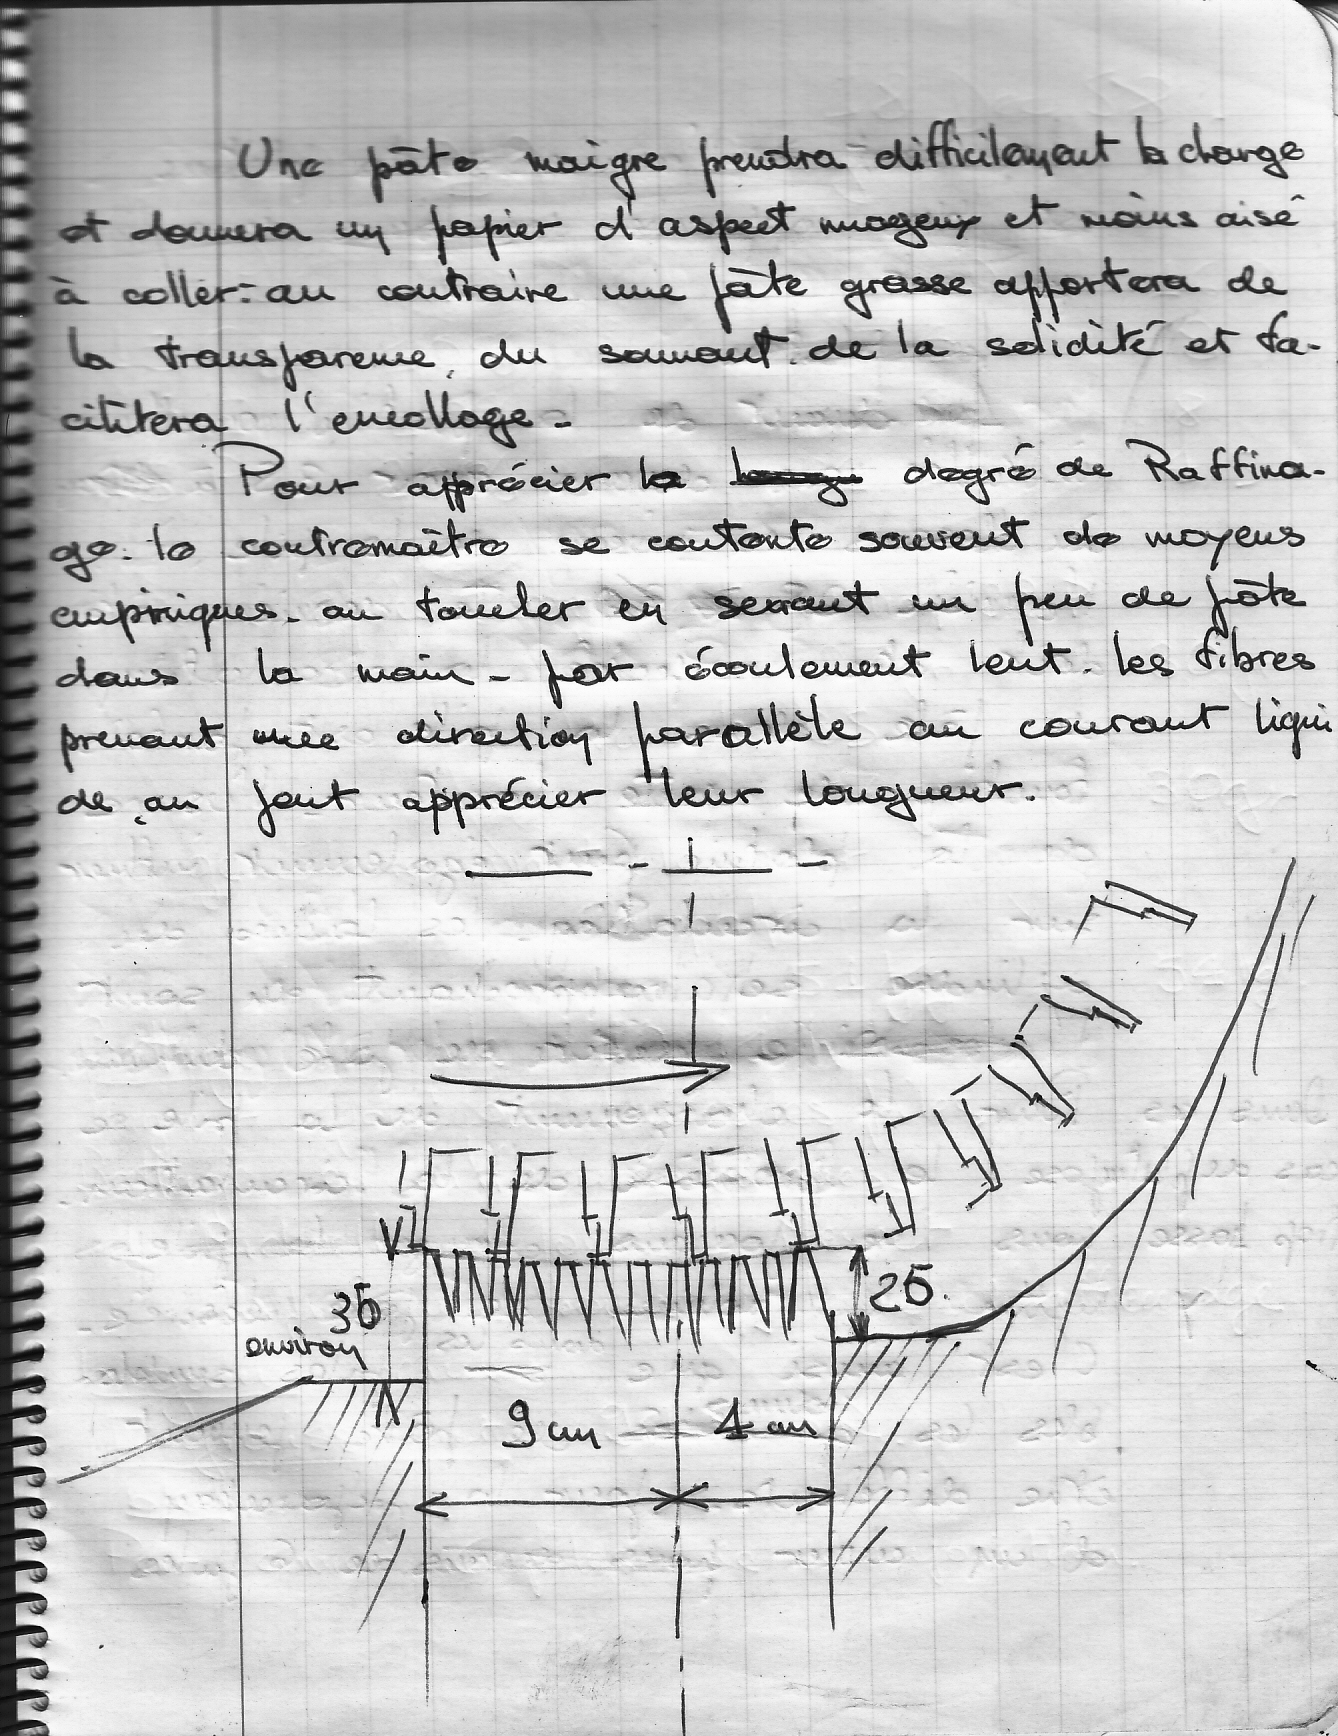 Une pâte maigre prendra difficilement la charge
et donnera un papier d'aspect nuageux et moins aisé
à coller - au contraire une pâte grasse apportera de
la transparence, du sonnant. de la solidité et fa-
cilitera l'encollage -
Pour apprécier le degré de Raffina-
ge. le contremaître se contente souvent de moyens
empiriques. au toucher en serrant un peu de pâte
dans la main - par écoulement lent. les fibres
prenant une direction parallèle au courant liqui
de, on peut apprécier leur longueur.
35
environ
25.
9 cm
4 cm